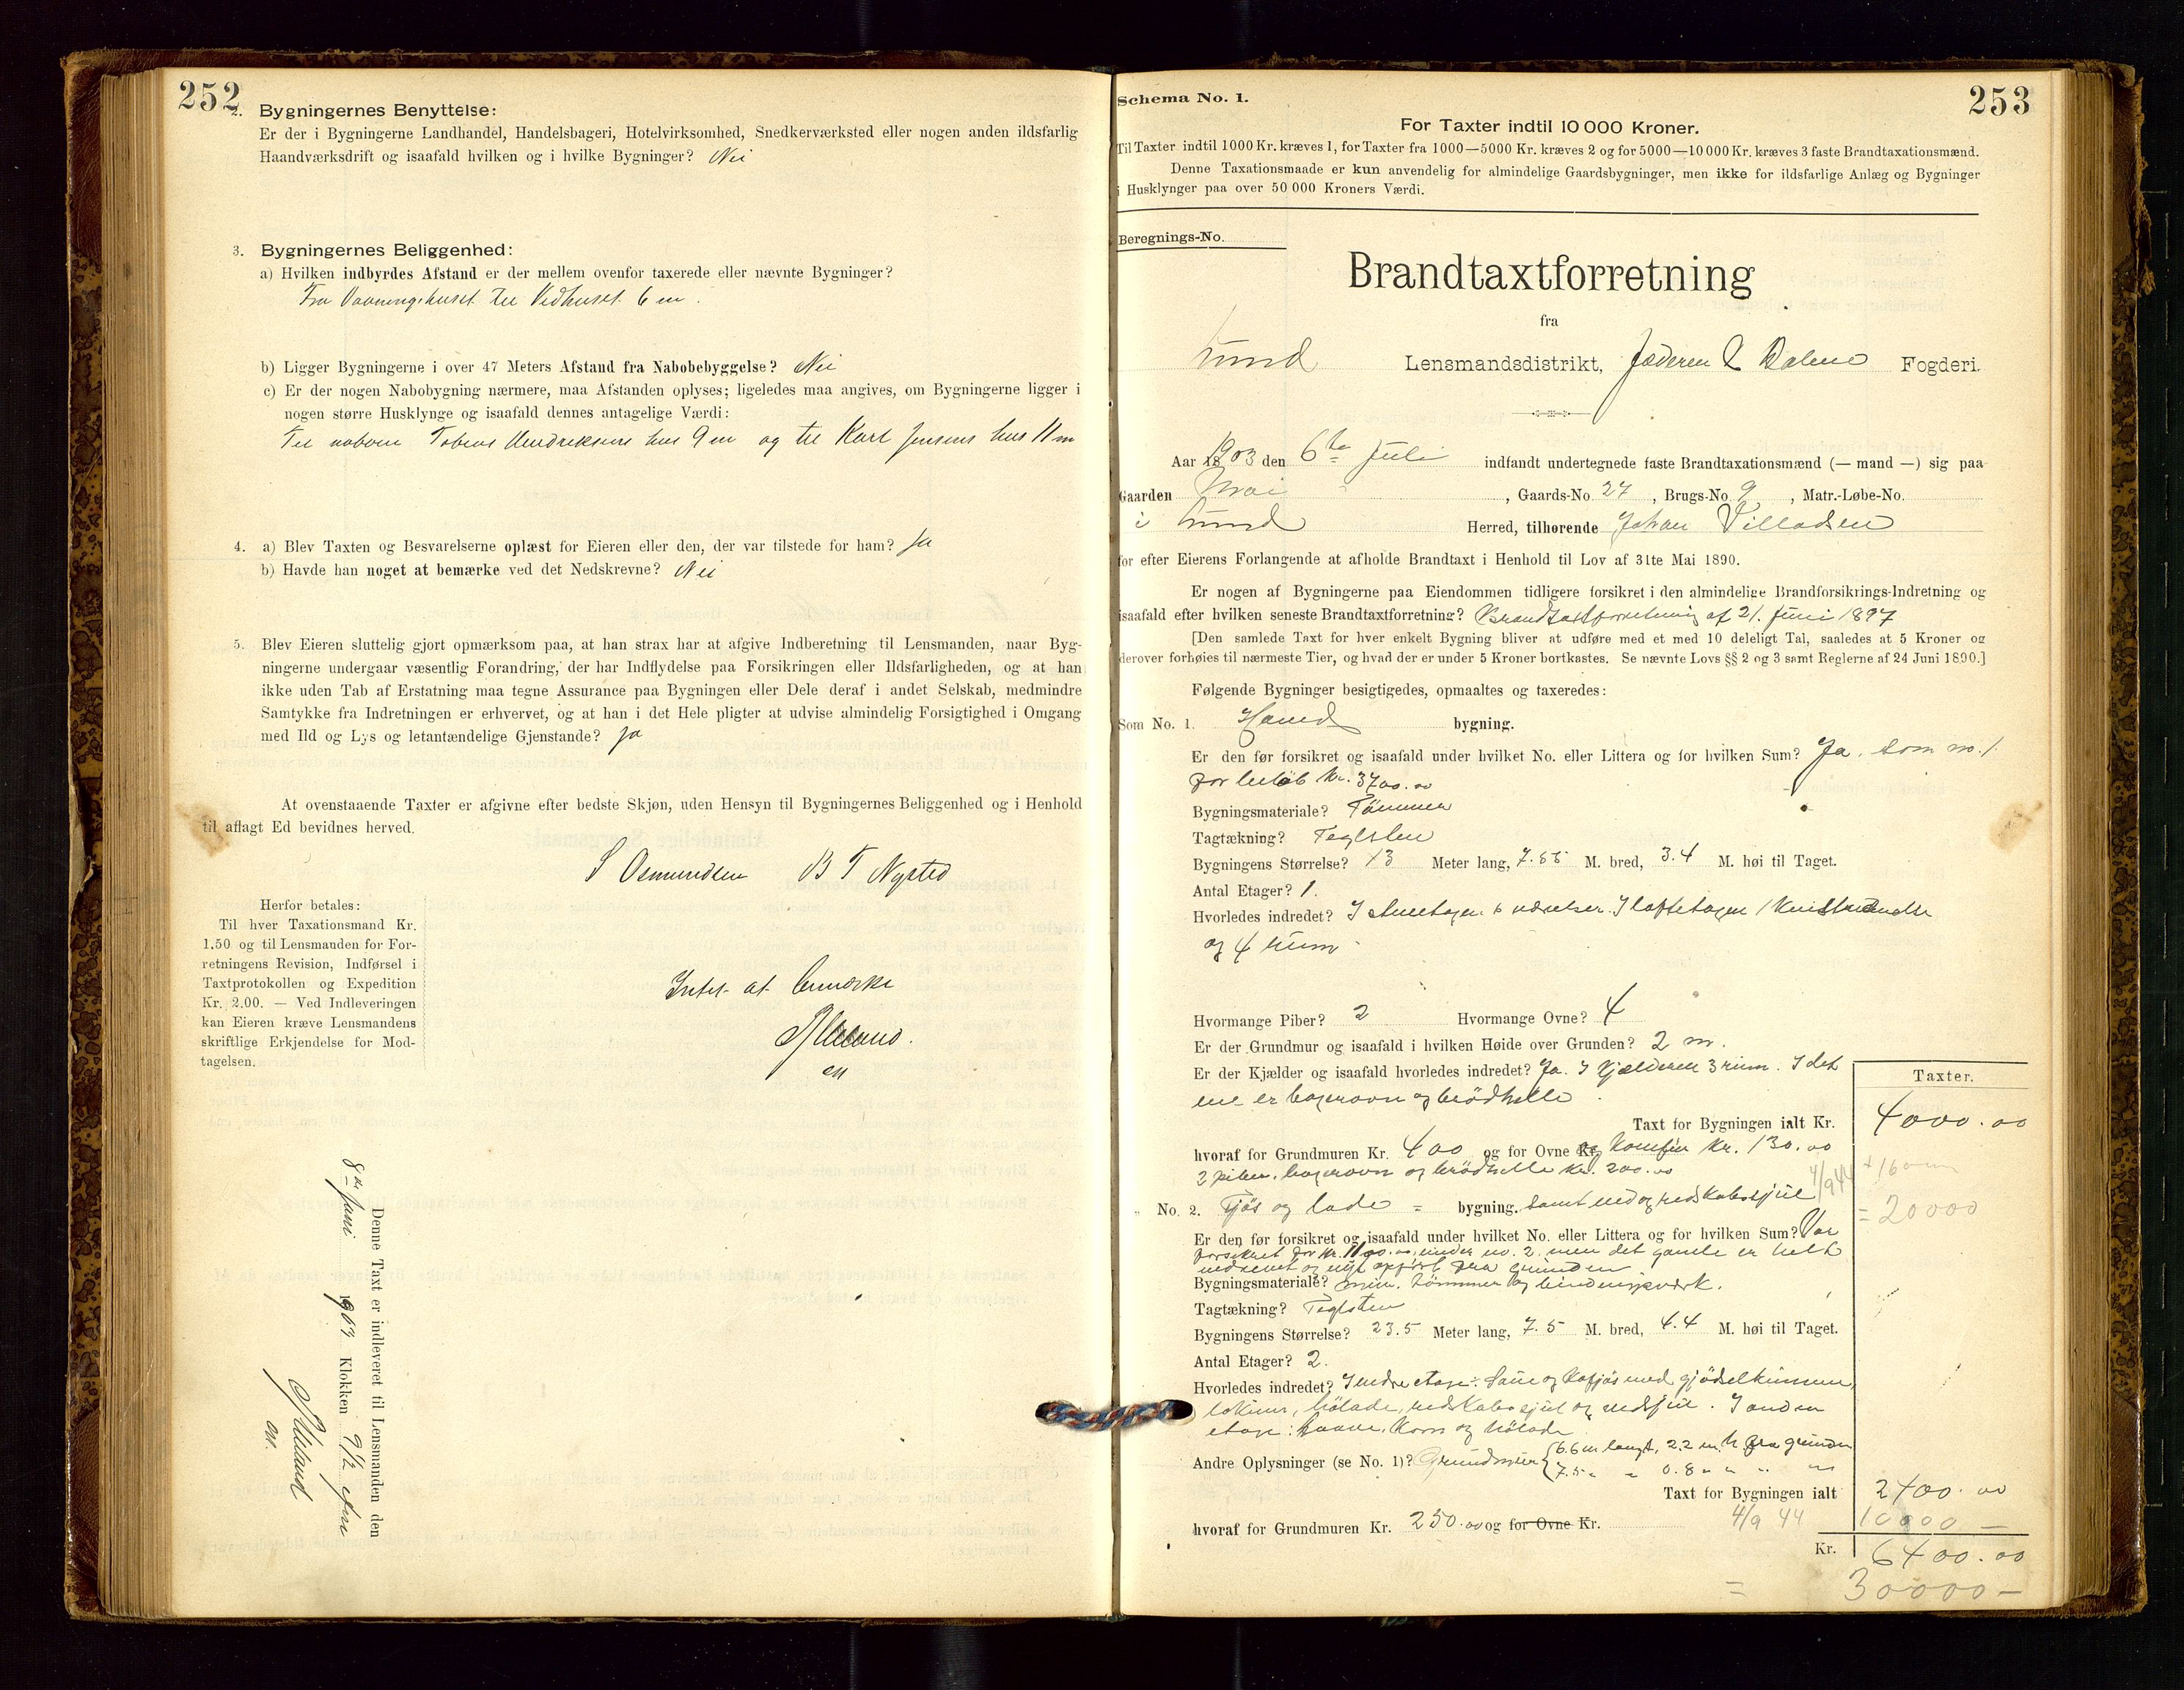 252
2. Bygningernes Benyttelse:
Er der i Bygningerne Landhandel, Handelsbageri, Hotelvirksomhed, Snedkerværksted eller nogen anden ildsfarlig
Haandværksdrift og isaafald hvilken og i hvilke Bygninger? Nei
3. Bygningernes Beliggenhed:
a) Hvilken indbyrdes Afstand er der mellem ovenfor taxerede eller nævnte Bygninger?
Fra Vaaningshuset til Vedhuset 6 m.
b) Ligger Bygningerne i over 47 Meters Afstand fra Nabobebyggelse? Nei
c) Er der nogen Nabobygning nærmere, maa Afstanden oplyses; ligeledes maa angives, om Bygningerne ligger i
nogen større Husklynge og isaafald dennes antagelige Værdi:
Til naboen Tobias Hendriksens hus 9 m og til Karl Jensens hus 11 m
4. a) Blev Taxten og Besvarelserne oplæst for Eieren eller den, der var tilstede for ham? Ja
b) Havde han noget at bemærke ved det Nedskrevne? Nei
5. Blev Eieren sluttelig gjort opmærksom paa, at han strax har at afgive Indberetning til Lensmanden, naar Byg-
ningerne undergaar væsentlig Forandring, der har Indflydelse paa Forsikringen eller Ildsfarligheden, og at han
ikke uden Tab af Erstatning maa tegne Assurance paa Bygningen eller Dele deraf i andet Selskab, medmindre
Samtykke fra Indretningen er erhvervet, og at han i det Hele pligter at udvise almindelig Forsigtighed i Omgang
med Ild og Lys og letantændelige Gjenstande? Ja
At ovenstaaende Taxter er afgivne efter bedste Skjøn, uden Hensyn til Bygningernes Beliggenhed og i Henhold
til aflagt Ed bevidnes herved.
S Osmundsen B T Nysted
Herfor betales:
Til hver Taxationsmand Kr.
1.50 og til Lensmanden for For-
retningens Revision, Indførsel i
Taxtprotokollen og Expedition
Kr. 2.00. — Ved Indleveringen
kan Eieren kræve Lensmandens
skriftlige Erkjendelse for Mod-
tagelsen.
Intet at bemærke
Denne Taxt er indleveret til Lensmanden den
8de Juni 1903 Klokken 9 1/2
253
Schema No. 1.
For Taxter indtil 10 000 Kroner.
Til Taxter indtil 1000 Kr. kræves 1, for Taxter fra 1000—5000 Kr. kræves 2 og for 5000—10 000 Kr. kræves 3 faste Brandtaxationsmænd.
Denne Taxationsmaade er kun anvendelig for almindelige Gaardsbygninger, men ikke for ildsfarlige Anlæg og Bygninger
i Husklynger paa over 50 000 Kroners Værdi.
Beregnings-No.
Brandtaxtforretning
fra
Lund Lensmandsdistrikt, Jæderen & Dalene Fogderi.
Aar 1903 den 6te Juli indfandt undertegnede faste Brandtaxationsmænd (— mand —) sig paa
Gaarden Moi, Gaards-No. 27, Brugs-No. 9, Matr.-Løbe-No.
i Lund Herred, tilhørende Johan Villadsen
for efter Eierens Forlangende at afholde Brandtaxt i Henhold til Lov af 31te Mai 1890.
Er nogen af Bygningerne paa Eiendommen tidligere forsikret i den almindelige Brandforsikrings-Indretning og
isaafald efter hvilken seneste Brandtaxtforretning? Brandtaxtforretning af 21. Juni 1897
[Den samlede Taxt for hver enkelt Bygning bliver at udføre med et med 10 deleligt Tal, saaledes at 5 Kroner og
derover forhøies til nærmeste Tier, og hvad der er under 5 Kroner bortkastes. Se nævnte Lovs §§ 2 og 3 samt Reglerne af 24 Juni 1890.]
Følgende Bygninger besigtigedes, opmaaltes og taxeredes:
Som No. 1. Hoved bygning.
Er den før forsikret og isaafald under hvilket No. eller Littera og for hvilken Sum? Ja. Som no. 1
for beløb kr. 3700.00
Bygningsmateriale? Tømmer
Tagtækning? Teglsten
Bygningens Størrelse? 13 Meter lang, 7.55 M. bred, 3.4 M. høi til Taget.
Antal Etager? 1.
Hvorledes indredet? I stueetagen 6 værelser. I loftetagen 1
og 4 rum
Hvormange Piber? 2 Hvormange Ovne? 4
Er der Grundmur og isaafald i hvilken Høide over Grunden? 2 m.
Er der Kjælder og isaafald hvorledes indredet? Ja. I Kjælderen 3 rum. I det
ene er bagerovn og brødhelle.
Taxter.
Taxt for Bygningen ialt Kr. 4000.00
hvoraf for Grundmuren Kr. 400 og for Ovne og komfur Kr. 130.00
2 piber, bagerovn og brødhelle kr. 200.00
4/9 44 + 16000
= 20000
" No. 2. Fjøs og lade = bygning. samt ved og redskabsskjul
Er den før forsikret og isaafald under hvilket No. eller Littera og for hvilken Sum? Var
forsikret for kr. 1100.00 under no. 2. men det gamle er helt
nedrevet og nyt opført fra grunden
Bygningsmateriale? mur, tømmer og bindingsværk.
Tagtækning? Teglsten
Bygningens Størrelse? 23.5 Meter lang, 7.5 M. bred, 4.4 M. høi til Taget.
Antal Etager? 2.
Hvorledes indredet? I nedre etage: Saue og kofjøs med gjødselkummer,
høladе, redskabsskjul og vedskjul. I anden
etage: Laave, Korn og hølade
Andre Oplysninger (se No. 1)? Grundmur { 6.6 m langt, 2.2 m. h. fra grunden
7.5 " " 0.8 " " " "
Taxt for Bygningen ialt 2400.00
hvoraf for Grundmuren Kr. 250.00 og for Ovne Kr. 4/9 44 10000 —
Kr. 6400.00
= 30000 —